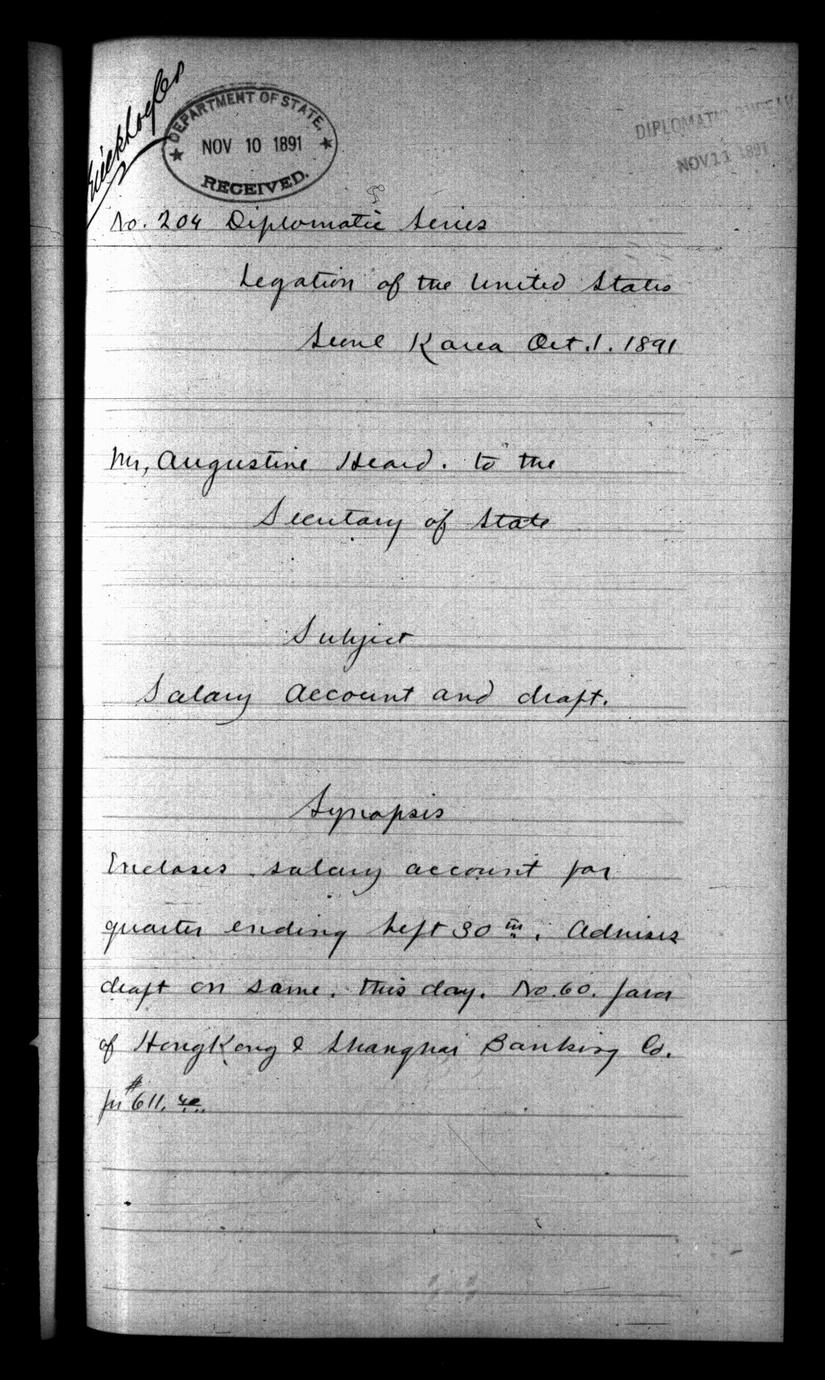 DEPARTMENT OF STATE.
NOV 10 1891
RECEIVED.
DIPLOMATIC BUREAU
NOV 11 1891
No. 204 Diplomatic Series
Legation of the United States
Seoul Korea Oct. 1. 1891
Mr, Augustine Heard. to the
Secretary of State
Subject
Salary account and draft.
Synopsis
Encloses salary account for
quarter ending Sept 30th. Advises
draft on same. this day. No. 60. favor
of HongKong & Shanghai Banking Co.
for $611.